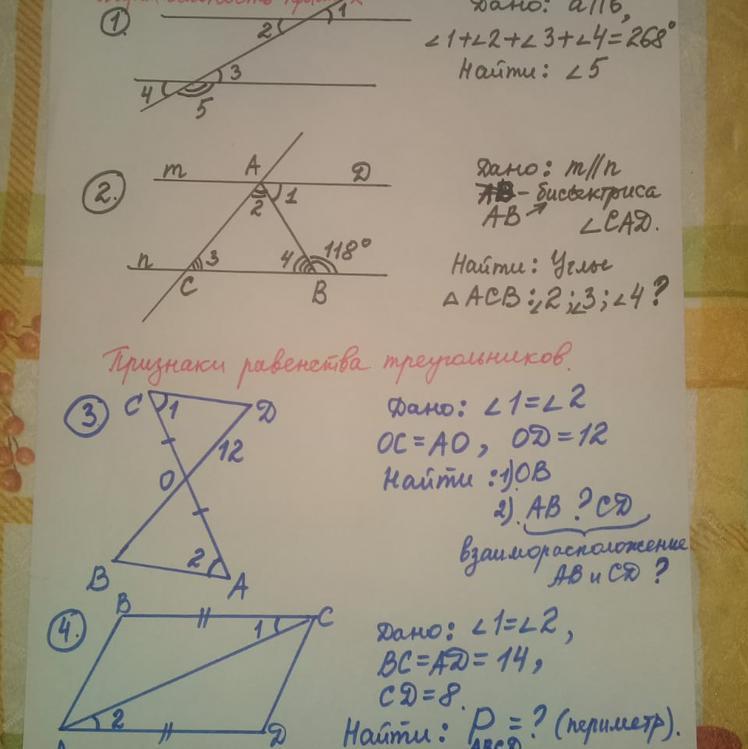 1.
Дано: a∥b,
∠1+∠2+∠3+∠4=268°
Найти: ∠5
1
2
3
4
5
2.
m
A
D
1
2
n
3
4
118°
C
B
Дано: m∥n
AB - биссектриса
∠CAD.
Найти: Углы
△ACB: ∠2; ∠3; ∠4?
Признаки равенства треугольников.
3
C
1
D
12
O
2
B
A
Дано: ∠1=∠2
OC=AO, OD=12
Найти: 1) OB
2). AB ? CD
взаиморасположение
AB и CD ?
4.
B
C
1
2
D
Дано: ∠1=∠2,
BC=AD=14,
CD=8.
Найти: P = ? (периметр).
ABCD